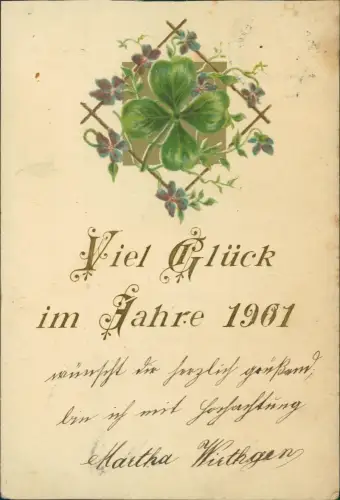 Viel Glück
im Jahre 1901
wünscht dir herzlich grüßend,
bin ich mit Hochachtung
Martha Wirthgen